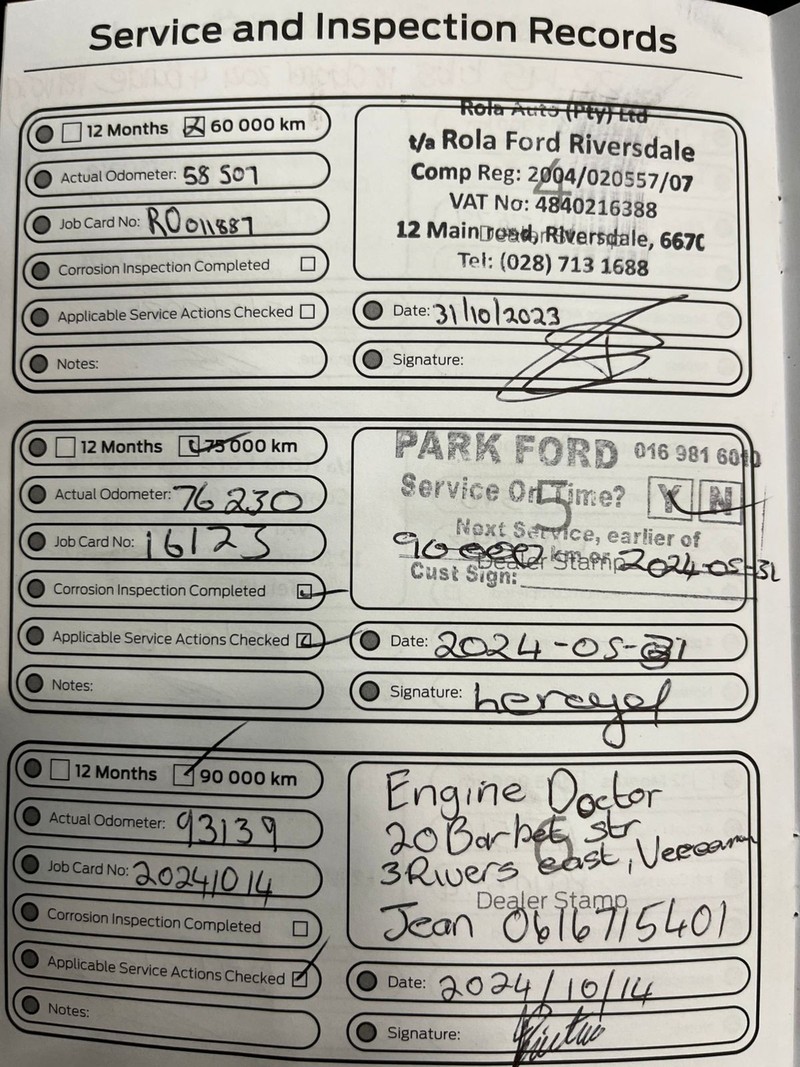 Service and Inspection Records
12 Months 60 000 km
Actual Odometer: 58 507
Job Card No: RO011887
Corrosion Inspection Completed
Applicable Service Actions Checked
Notes:
Rola Auto (Pty) Ltd
t/a Rola Ford Riversdale
Comp Reg: 2004/020557/07
4
VAT No: 4840216388
12 Main road, Riversdale, 6670
Tel: (028) 713 1688
Date: 31/10/2023
Signature:
12 Months 75 000 km
Actual Odometer: 76 230
Job Card No: 16123
Corrosion Inspection Completed
Applicable Service Actions Checked
Notes:
PARK FORD 016 981 6010
Service On Time? Y N
5
Next Service, earlier of
90 000 km or 2024-05-31
Dealer Stamp
Cust Sign:
Date: 2024-05-31
Signature:
12 Months 90 000 km
Actual Odometer: 93139
Job Card No: 20241014
Corrosion Inspection Completed
Applicable Service Actions Checked
Notes:
Engine Doctor
20 Barbet str
6
3 Rivers east,
Dealer Stamp
Jean 0616715401
Date: 2024/10/14
Signature: